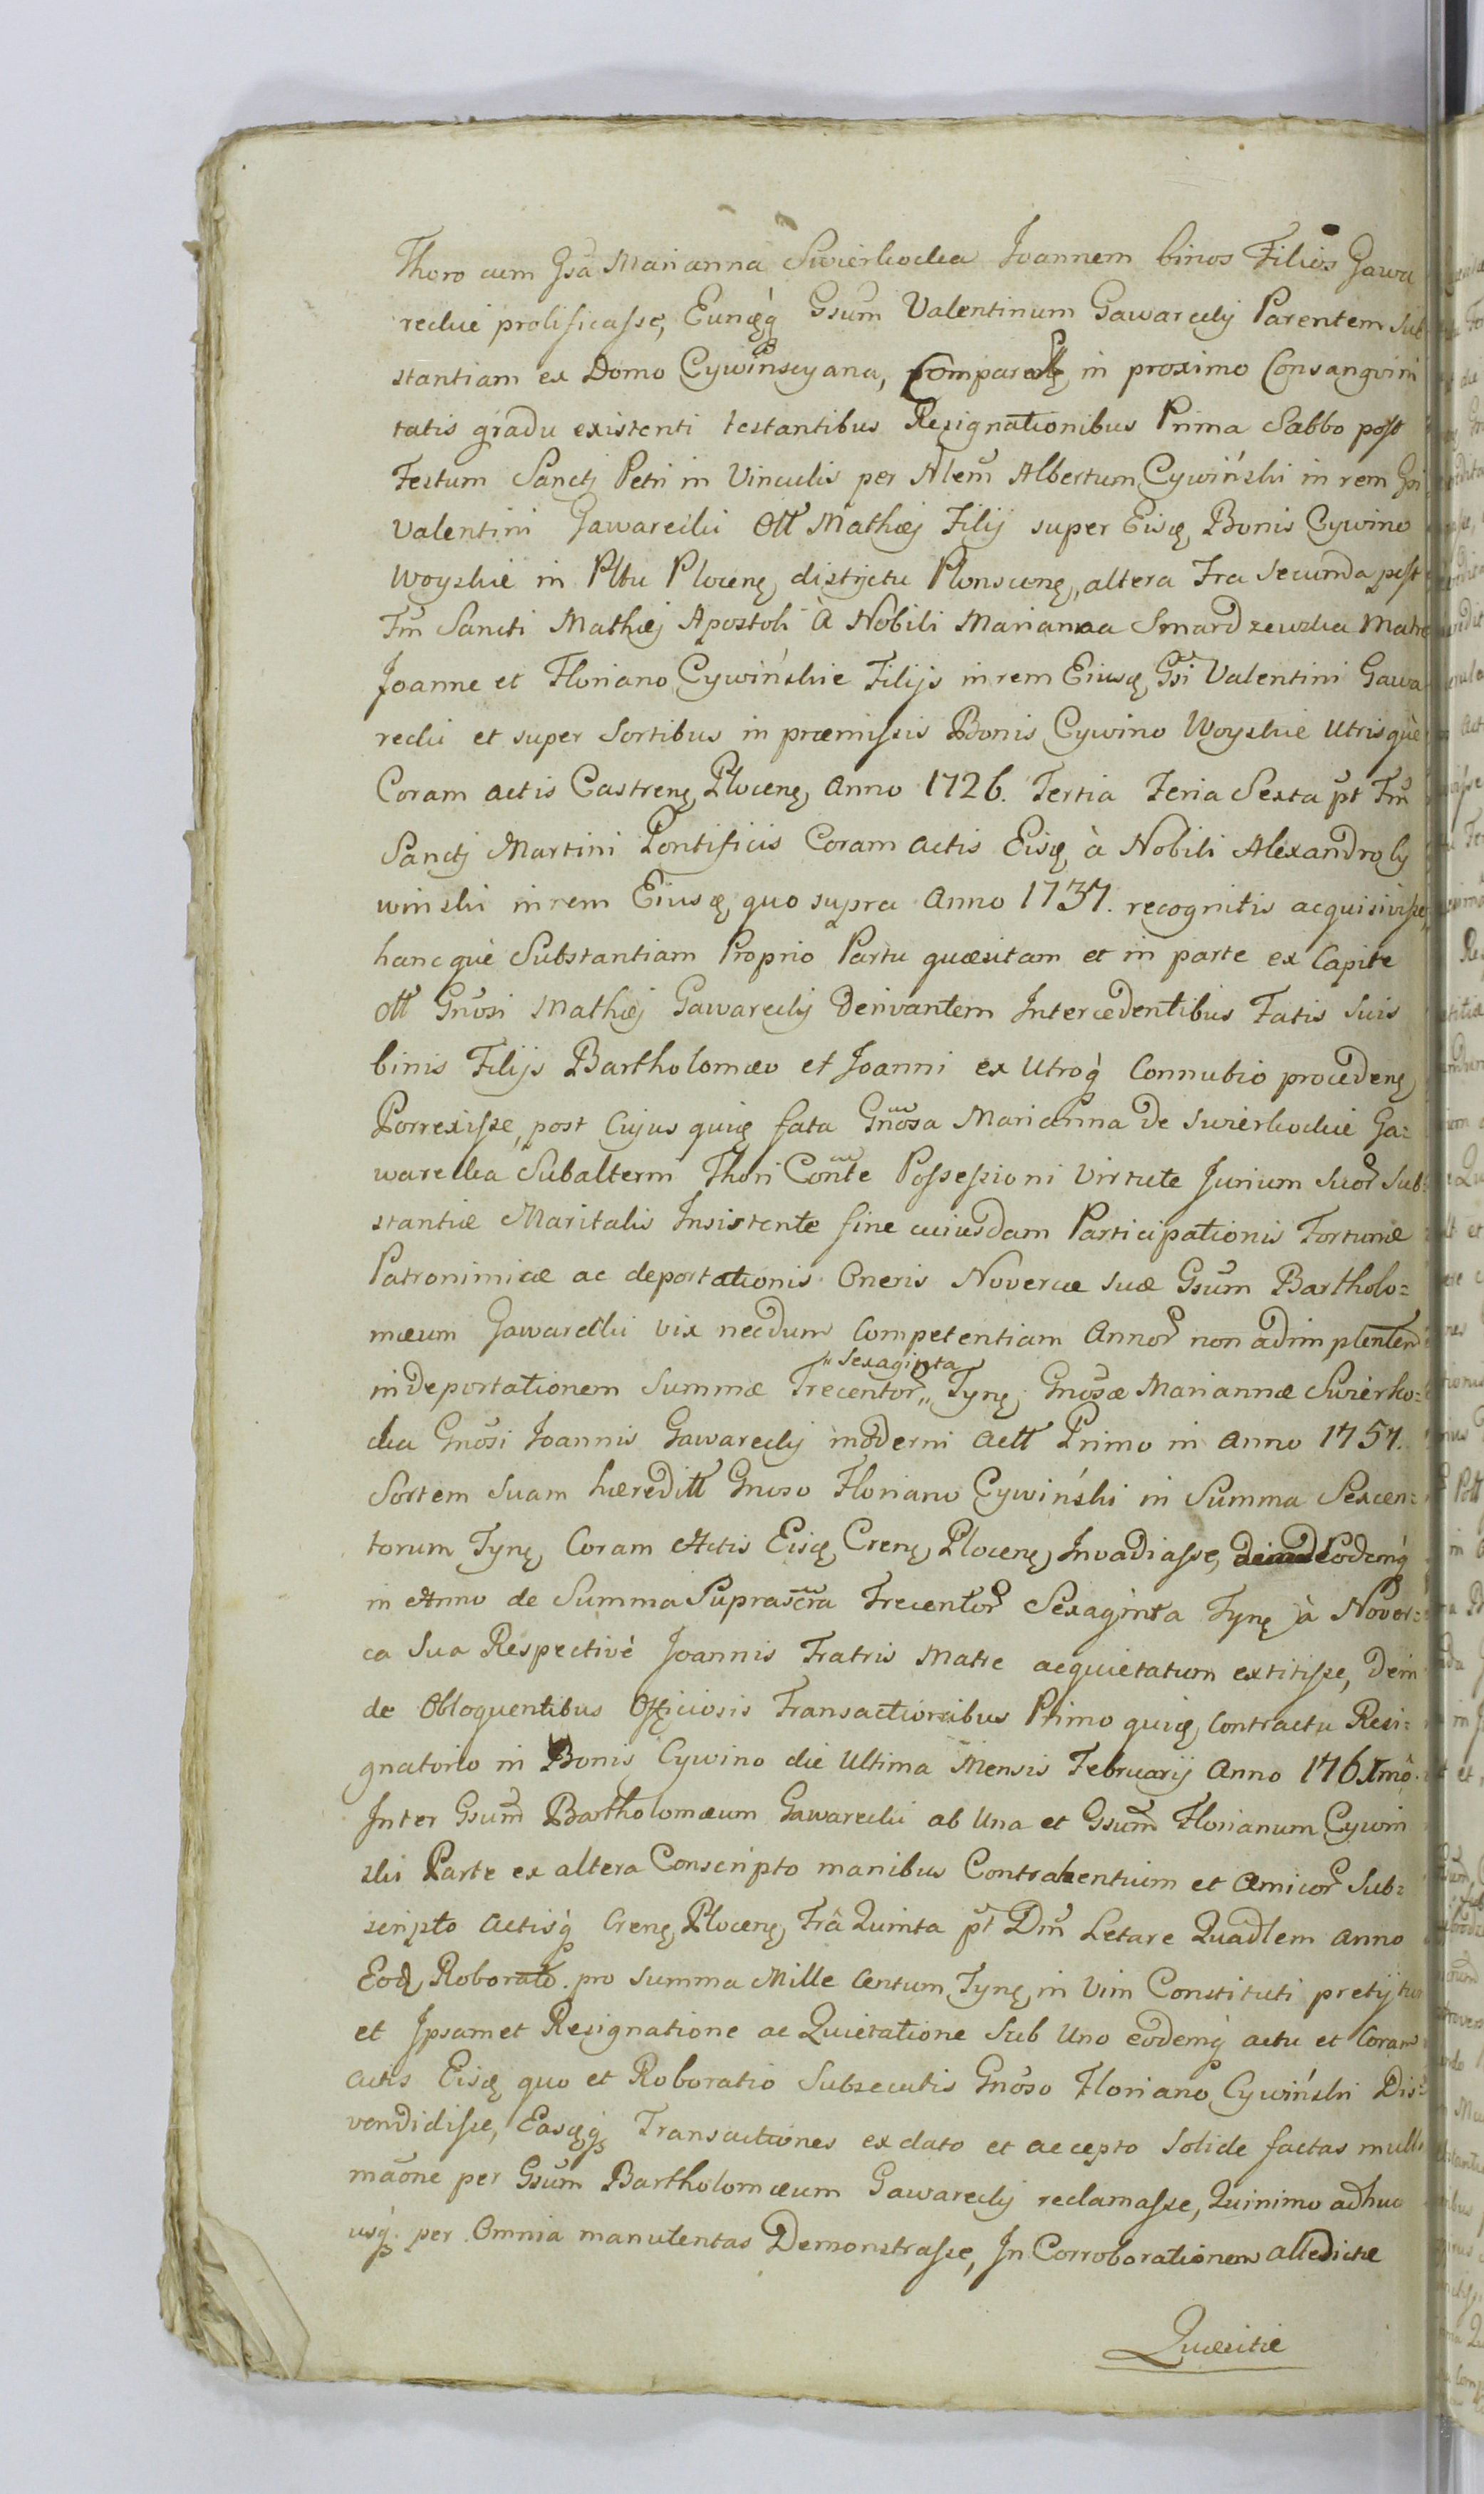 Thoro cum Gsa Marianna Swierkocka Joannem binos Filios Gawa
reckie prolificasse, Eunq́ Gsum Valentinum Gawarecky Parentem Sub
stantiam ex Domo Cywinscyana, in proximo Consangvini
tatis gradu existenti testantibus Resignationibus Prima Sabbo post
Festum Sanctj Petri in Vinculis per Nlem Albertum Cywiński in rem Gsi
Valentini Gawarecki Olt Mathæj Filij super Eisę Bonis Cywino
Woyskie in Pltu Plocenę distrjctu Plonscenę, altera Fra Secunda post
Fm̃ Sancti Mathiæj Apostoli à Nobili Marianna Smardzewska Matre
Joanne et Floriano Cywińskie Filijs in rem Eiusę Gsi Valentini Gawa
recki et super Sortibus in præmissis Bonis Cywino Woyskie Utrisquè
Coram actis Castrenę Plocenę Anno 1726. Tertia Feria Sexta pt Fm̃
Sanctj Martini Pontificis Coram actis Eisę à Nobili Alexandro Cy
winski in rem Eiusę quo supra Anno 1737. recognitis acquisivisse,
hancquè Substantiam Proprio Partu quæsitam et in parte ex Capite
Olt Gnosi Mathiæj Gawarecky Derivantem Intercedentibus Fatis Suis
binis Filijs Bartholomæo et Joanni ex Utroq́ Connubio procedenę
Porrexisse, post Cujus quię fata Gnosa Marianna De Swierkockie Ga=
warecka Subalterni Thori Conte Possessioni Virtute Jurium Suor Sub=
stantiæ Maritalis Insistente fine cuiusdam Participationis Fortunæ
Patronimicæ ac deportationis Oneris Novercæ Suæ Gsum Bartholo=
mæum Gawarecki vix necdum Competentiam Annor non adimplentem
in Deportationem Summæ Trecentor „ Sexaginta „ Tynę Gnosæ Mariannæ Swierko=
cka Gnosi Joannis Gawarecky moderni Actt Primo in Anno 1757.
Sortem Suam hæreditt Gnoso Floriano Cywiński in Summa Sexcen=
torum Tynę Coram Actis Eisę Crenę Plocenę Invadiasse, Eodemq́
in Anno de Summa Suprascra Trecentor Sexaginta Tynę à Nover=
ca Sua Respectivè Joannis Fratris Matre acquietatum extitisse, Dein
de Obloquentibus Officiosis Transactionibus Primo quię Contractu Resi=
gnatorio in Bonis Cywino die Ultima Mensis Februarij Anno 1761mo.
Inter Gsum Bartholomæum Gawarecki ab Una et Gsum Florianum Cywin
ski Parte ex altera Conscripto manibus Contrahentium et Amicor Sub=
scripto Actisq́ Crenę Plocenę Fra Quinta pt Dm̃ Letare Quadlem Anno
Eodę Roborato pro Summa Mille Centum Tynę in Vim Constituti pretij
et Ipsamet Resignatione ac Quietatione Sub Uno eodemq́ actu et Coram
actis Eisę quo et Roboratio Subsecutis Gnoso Floriano Cywiński Dis=
vendidisse, Easęq́ Transactiones ex dato et accepto Solide factas
maone per Gsum Bartholomæum Gawarecky reclamasse, Quinimo adhuc
usq́ per Omnia manutentas Demonstrasse, In Corroborationem
Quæsitæ